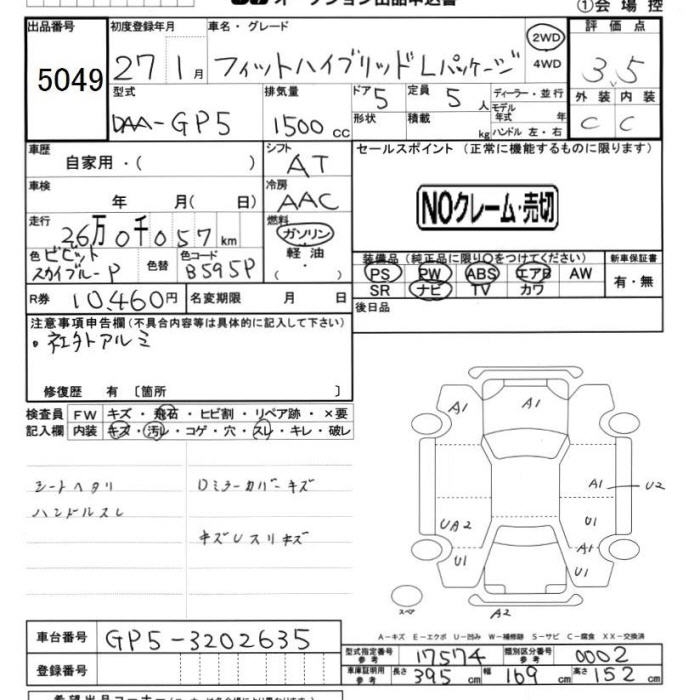 オークション出品申込書
①会場控
出品番号 初度登録年月 車名・グレード 評価点
5049 27 1月 フィットハイブリッドLパッケージ 2WD 4WD 3.5
型式 排気量 ドア 定員 ディーラー・並行 外装 内装
DAA-GP5 1500cc 5 5人 モデル年式 年 C C
形状 積載 kg ハンドル 左・右
車歴 自家用・( ) シフト AT セールスポイント (正常に機能するものに限ります)
車検 年 月( 日) 冷房 AAC NOクレーム・売切
走行 26万0千057km 燃料 ガソリン
軽油
・( )
色 ビビットスカイブルーP 色替 色コード B595P
装備品(純正品に限り○をつけてください) 新車保証書
PS PW ABS エアB AW 有・無
SR ナビ TV カワ
R券 10,460円 名変期限 月 日 後日品
注意事項申告欄(不具合内容等は具体的に記入して下さい)
・社外アルミ
修復歴 有 〔箇所 〕
検査員 FW キズ・飛石・ヒビ割・リペア跡・×要
記入欄 内装 キズ・汚レ・コゲ・穴・スレ・キレ・破レ
シートヘタリ Dミラーカバーキズ
ハンドルスレ
キズUスリキズ
A1 A1
A1 U2
UA2 U1
U1 A1
U1
スペア A2
A-キズ E-エクボ U-凹み W-補修跡 S-サビ C-腐食 XX-交換済
車台番号 GP5-3202635
型式指定番号 参考 17574 類別区分番号 参考 0002
登録番号 車庫証明用 参考 長さ 395cm 幅 169cm 高さ 152cm
希望出品コーナー